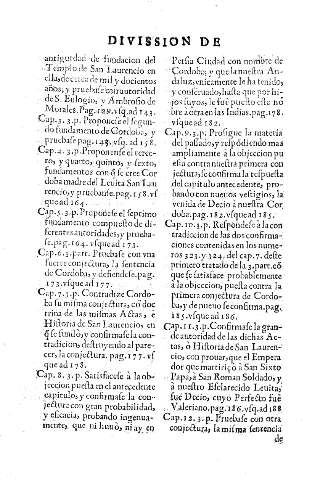 DIVISSION DE
antiguedad de fundacion del
Templo de San Laurencio en
ellas, de cerca de mil y docientos
años, y pruebase cõ autoridad
de S. Eulogio, y Ambrosio de
Morales. Pag. 129. vsq. ad 143.
Cap. 3. 3. p. Proponese el segun-
do fundamento de Cordoba, y
pruebase pag. 143. vsq. ad 158.
Cap. 4. 3. p. Proponense el terce-
ro, y quarto, quinto, y sexto,
fundamentos con q̃ se cree Cor
doba madre del Leuita San Lau
rencio, y pruebase. pag. 158. vs
que ad 164.
Cap. 5. 3. p. Proponese el septimo
fundamento compuesto de di-
ferentes autoridades, y prueba-
se. pag. 164. vsque ad 173.
Cap. 6. 3. part. Pruebase con mas
fuerte conjectura, la sentencia
de Cordoba, y defiendese. pag.
173. vsque ad 177.
Cap. 7. 3. p. Contradize Cordo-
ba su misma conjectura, cõ doc
trina de las mismas Actas, ò
Historia de San Laurencio, en
q̃ se fundò, y confirmase la con-
tradicion, destruyendo al pare-
cer, la conjectura. pag. 177. vs
que ad 178.
Cap. 8. 3. p. Satisfacese à la ob-
jeccion puesta en el antecedente
capitulo, y confirmase la con-
jecture con gran probabilidad,
y eficacia, probando ingenua-
mente, que ni huuo, ni ay en
Persia Ciudad con nombre de
Cordoba; y que la nuestra An-
daluz, vnicamente le ha tenido,
y conseruado, hasta que por hi-
jos suyos, le fuè puesto este nõ
bre à otra en las Indias. pag. 178.
vsque ad 182.
Cap. 9. 3. p. Prosigue la materia
del passado, y respõdiendo mas
ampliamente à la objeccion pu
esta contra nuestra primera con
jectura, se confirma la respuesta
del capitulo antecedente, pro-
bando con nueuos vestigios, la
venida de Decio à nuestra Cor
doba. pag. 182. vsque ad 185.
Cap. 10. 3. p. Respondese à la con
tradicion de las dos confirma-
ciones contenidas en los nume-
ros 323. y 324. del cap. 7. deste
primero tratado de la 3. part. cõ
que se satisface probablemente
à la objeccion, puesta contra la
primera conjectura de Cordo-
ba, y de nueuo se confirma. pag.
185. vsque ad 186.
Cap. 11. 3. p. Confirmase la gran-
de autoridad de las dichas Ac-
tas, ò Historia de San Lauren-
cio, con prouar, que el Empera
dor que martirizò à San Sixto
Papa, à San Roman Soldado, y
à nuestro Esclarecido Leuita,
fuè Decio, cuyo Perfecto fuè
Valeriano. pag. 186. vsq. ad 188
Cap. 12. 3. p. Pruebase con otra
conjectura, la misma sentencia
de